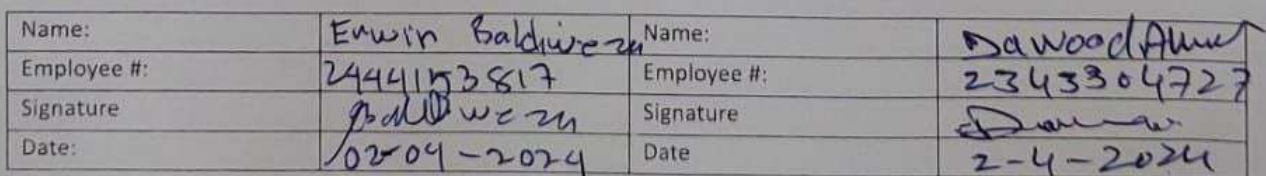 Name: Erwin Baldiwezu Name: Dawood Ahmed
Employee #: 24441153817 Employee #: 2343304727
Signature Signature
Date: 02-04-2024 Date 2-4-2024